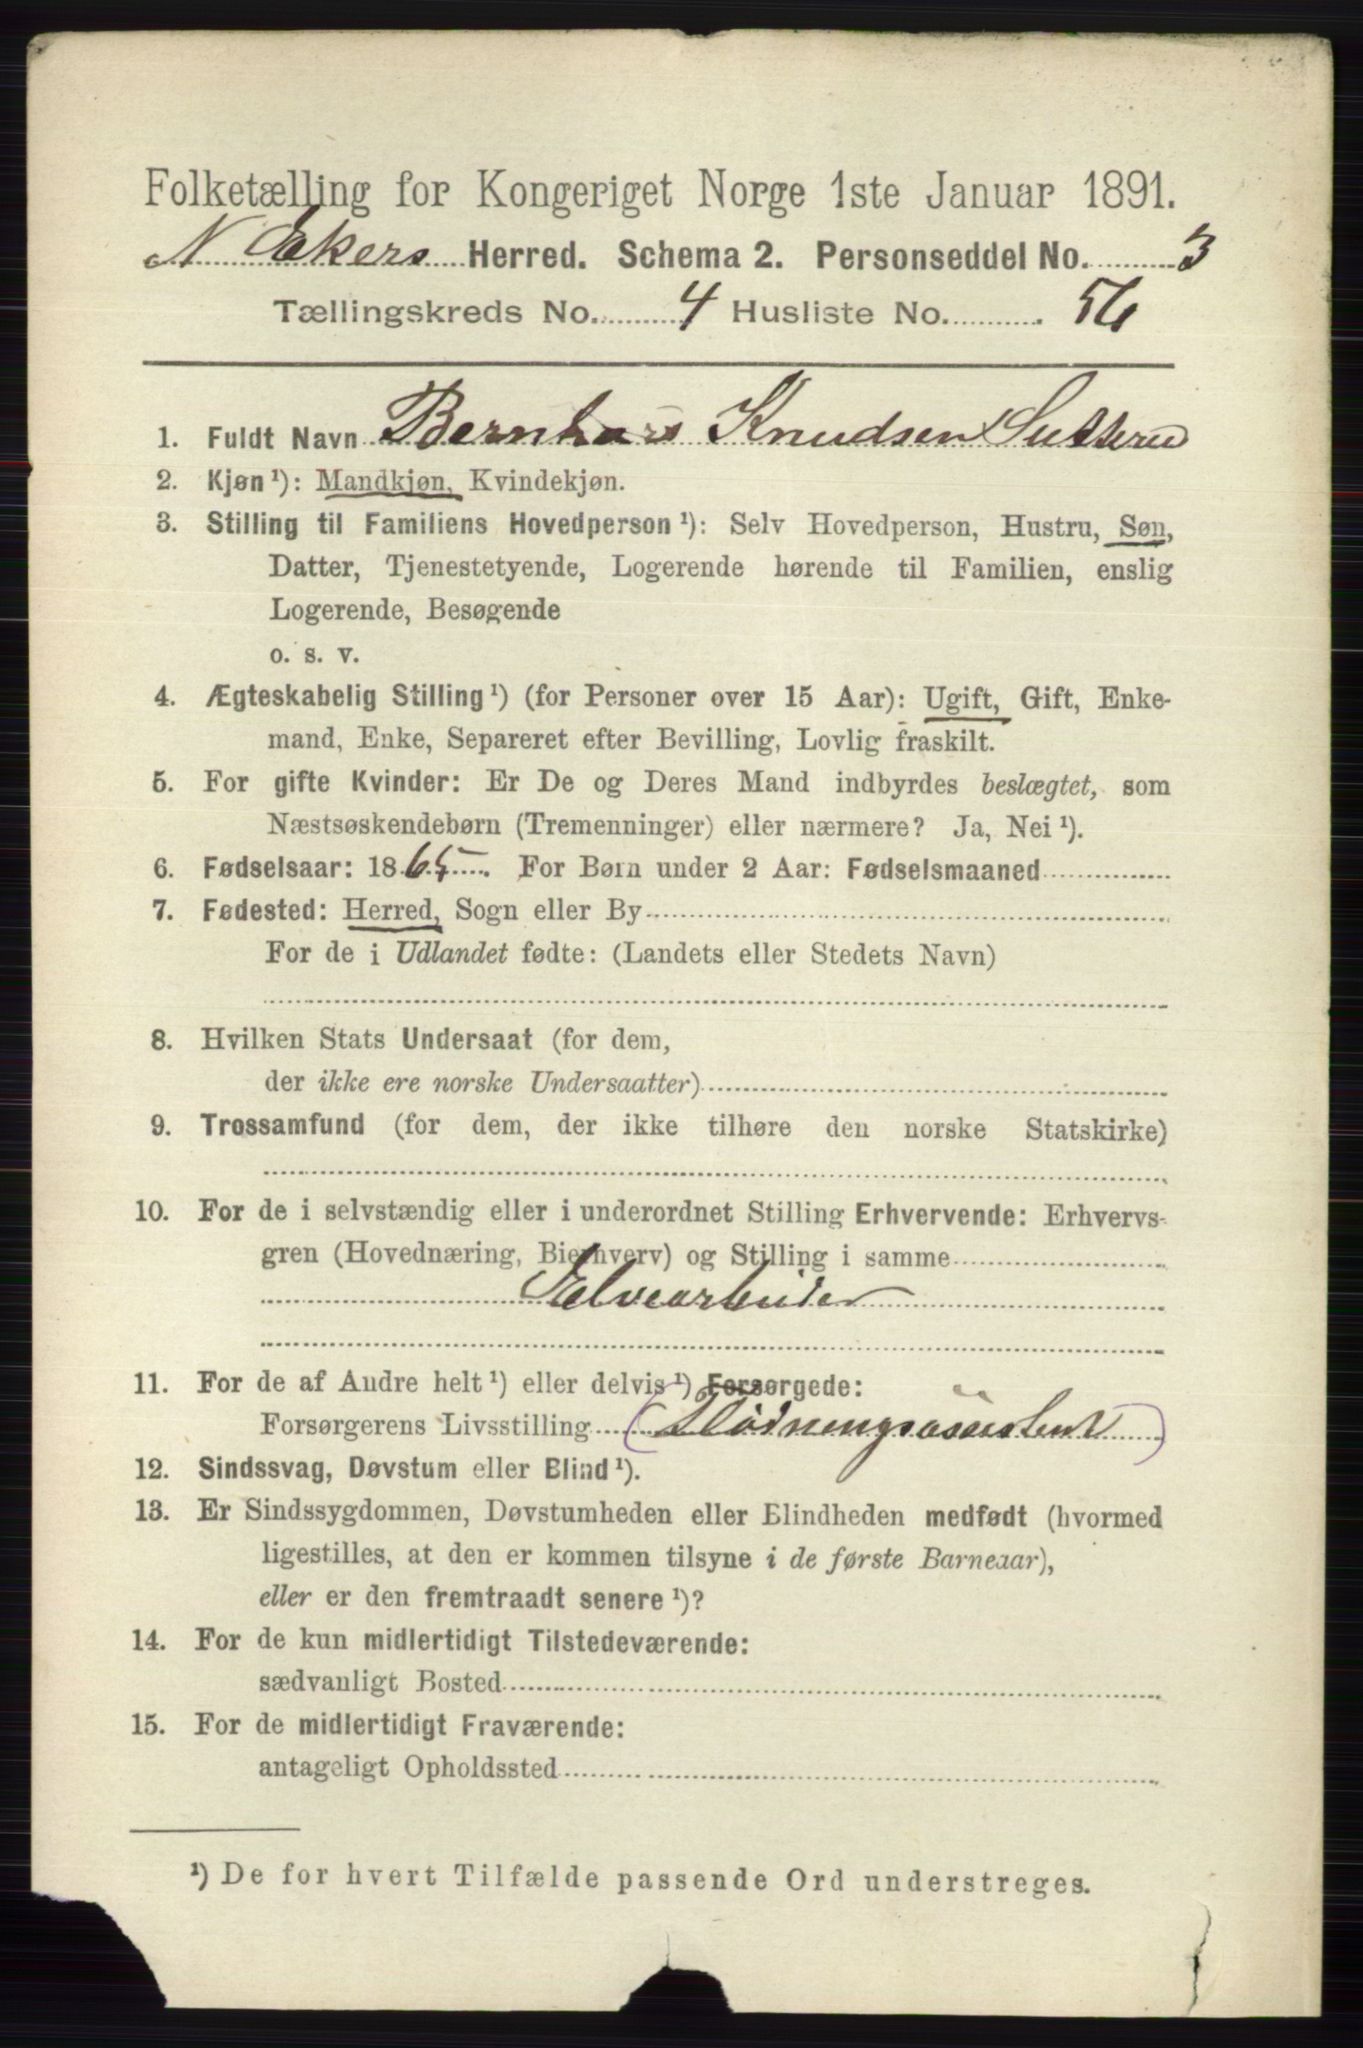 Folketælling for Kongeriget Norge 1ste Januar 1891.
N. Ekers Herred. Schema 2. Personseddel No. 3
Tællingskreds No. 4 Husliste No. 56
1. Fuldt Navn Bernhard Knudsen
2. Kjøn ¹): Mandkjøn, Kvindekjøn.
3. Stilling til Familiens Hovedperson ¹): Selv Hovedperson, Hustru, Søn,
Datter, Tjenestetyende, Logerende hørende til Familien, enslig
Logerende, Besøgende
o. s. v.
4. Ægteskabelig Stilling ¹) (for Personer over 15 Aar): Ugift, Gift, Enke-
mand, Enke, Separeret efter Bevilling, Lovlig fraskilt.
5. For gifte Kvinder: Er De og Deres Mand indbyrdes beslægtet, som
Næstsøskendebørn (Tremenninger) eller nærmere? Ja, Nei ¹).
6. Fødselsaar: 1865. For Børn under 2 Aar: Fødselsmaaned
7. Fødested: Herred, Sogn eller By
For de i Udlandet fødte: (Landets eller Stedets Navn)
8. Hvilken Stats Undersaat (for dem,
der ikke ere norske Undersaatter)
9. Trossamfund (for dem, der ikke tilhøre den norske Statskirke)
10. For de i selvstændig eller i underordnet Stilling Erhvervende: Erhvervs-
gren (Hovednæring, Bierhverv) og Stilling i samme
Elvearbeider
11. For de af Andre helt ¹) eller delvis ¹) Forsørgede:
Forsørgerens Livsstilling (Flødningsassistent)
12. Sindssvag, Døvstum eller Blind ¹).
13. Er Sindssygdommen, Døvstumheden eller Blindheden medfødt (hvormed
ligestilles, at den er kommen tilsyne i de første Barneaar),
eller er den fremtraadt senere ¹)?
14. For de kun midlertidigt Tilstedeværende:
sædvanligt Bosted
15. For de midlertidigt Fraværende:
antageligt Opholdssted
¹) De for hvert Tilfælde passende Ord understreges.